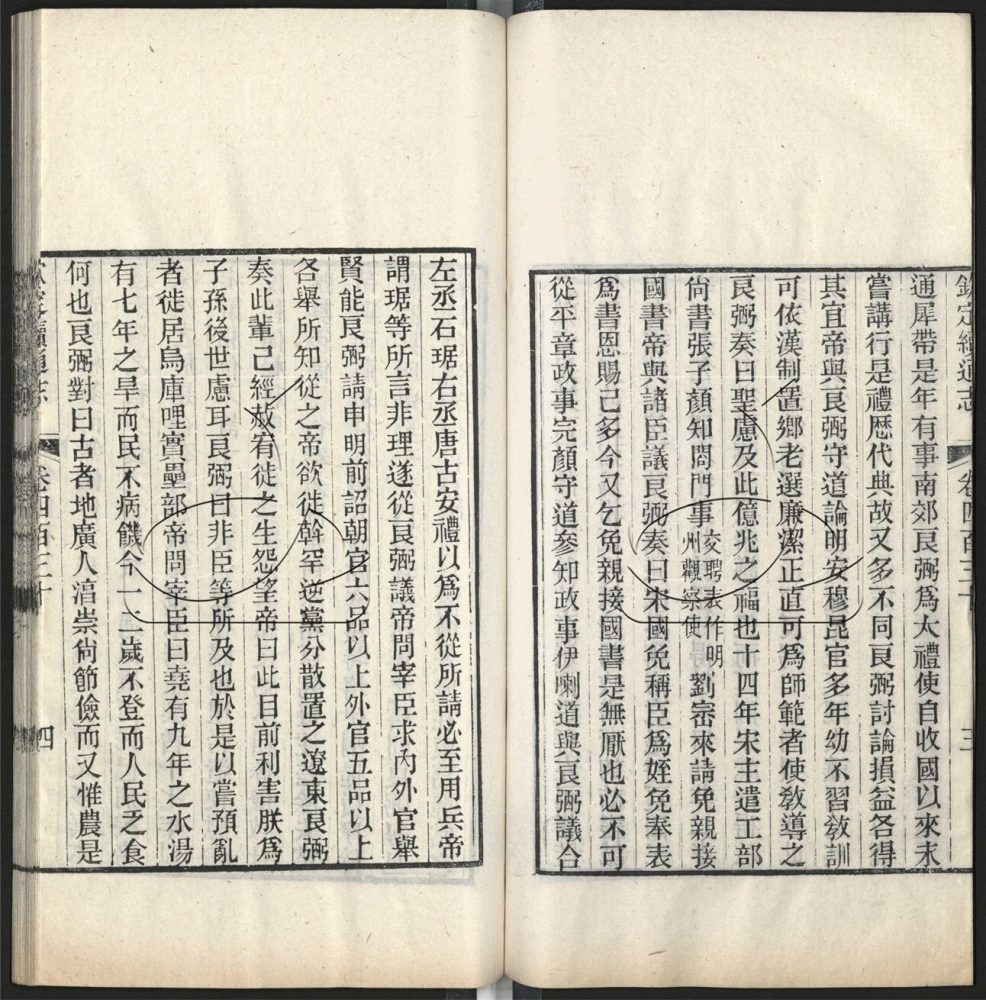 欽定續通志 卷四百三十 三
通犀帶是年有事南郊良弼爲大禮使自收國以來未
嘗講行是禮歷代典故又多不同良弼討論損益各得
其宜帝與良弼守道論明安穆昆官多年幼不習教訓
可依漢制置鄉老選廉潔正直可爲師範者使教導之
良弼奏曰聖慮及此億兆之福也十四年宋主遣工部
尙書張子顏知閤門事交聘表作明州觀察使劉密來請免親接
國書帝與諸臣議良弼奏曰宋國免稱臣爲姪免奉表
爲書恩賜已多今又乞免親接國書是無厭也必不可
從平章政事完顏守道參知政事伊喇道與良弼議合
左丞石琚右丞唐古安禮以爲不從所請必至用兵帝
謂琚等所言非理遂從良弼議帝問宰臣求內外官舉
賢能良弼請申明前詔朝官六品以上外官五品以上
各舉所知從之帝欲徙斡罕逆黨分散置之遼東良弼
奏此輩已經赦宥徙之生怨望帝曰此目前利害朕爲
子孫後世慮耳良弼曰非臣等所及也於是以嘗預亂
者徙居烏庫哩實壘部帝問宰臣曰堯有九年之水湯
有七年之旱而民不病饑今一二歲不登而人民乏食
何也良弼對曰古者地廣人湻崇尙節儉而又惟農是
欽定續通志 卷四百三十 四